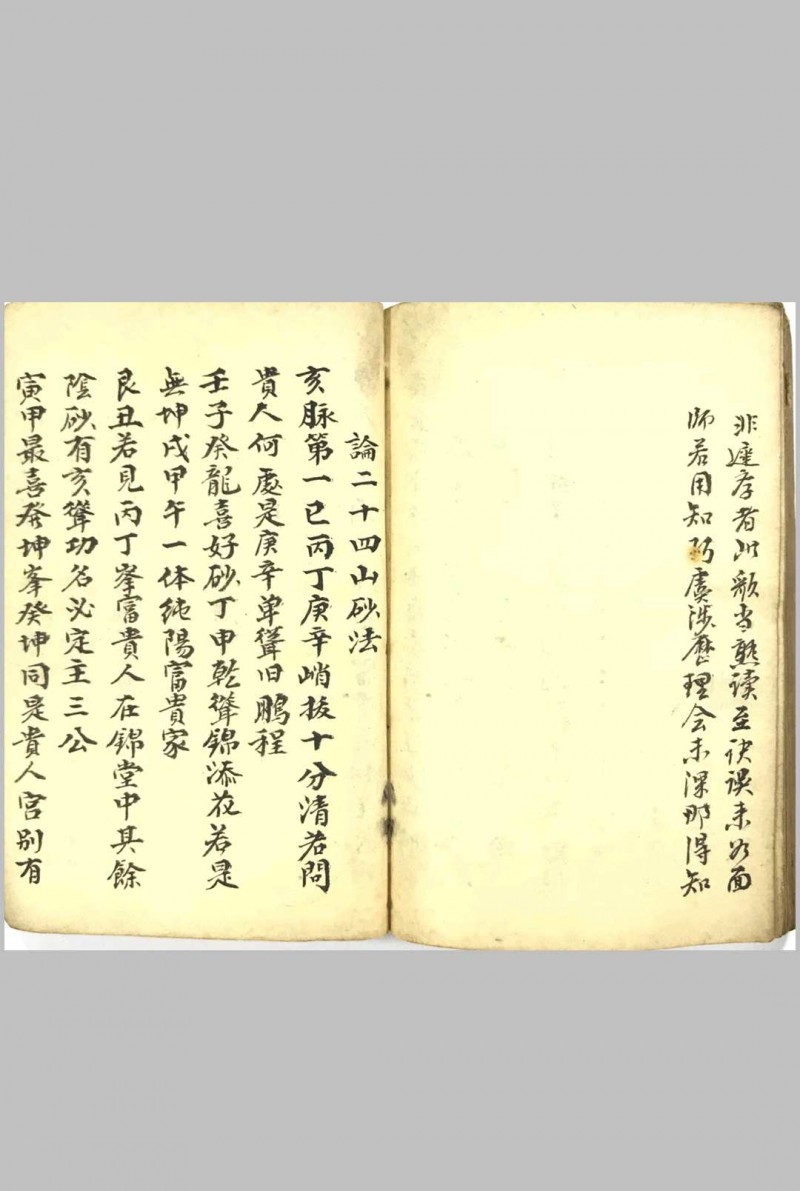 非遑孝者此歌当熟读至诀误未必面
师若用知巧虞涉歷理会未深那得知
論二十四山砂法
亥脉第一巳丙丁庚辛峭拔十分清若問
貴人何處是庚辛単聳旧鵬程
壬子癸龍喜好砂丁甲乾聳錦添花若是
無坤戌甲午一体純陽富貴家
艮丑若見丙丁峯富貴人在錦堂中其餘
陰砂有亥聳功名必定主三公
寅甲最喜癸坤峯癸坤同是貴人宮别有